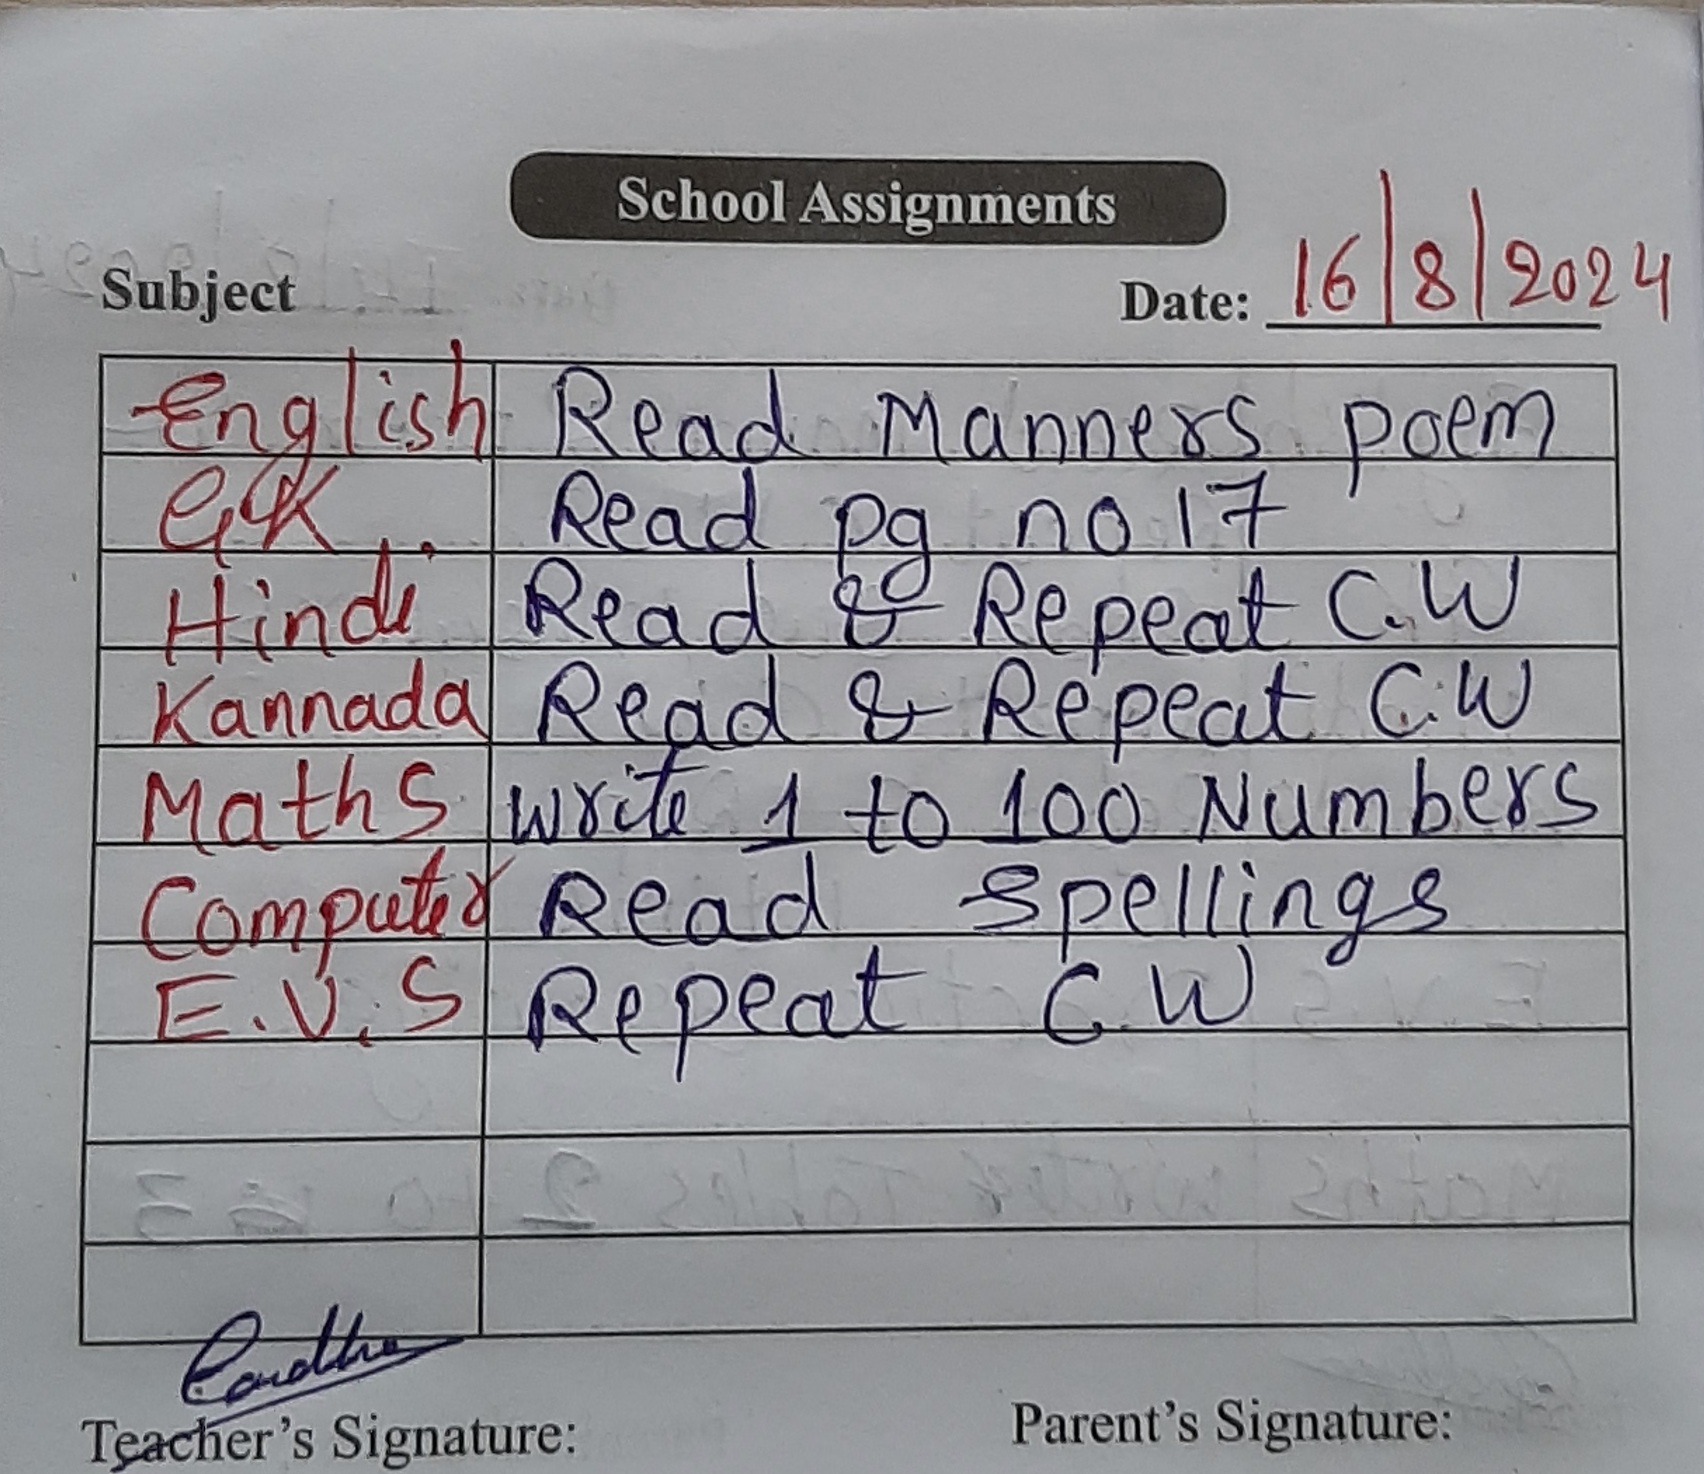 School Assignments
Subject Date: 16/8/2024
English Read Manners poem
G.K Read pg no 17
Hindi Read & Repeat C.W
Kannada Read & Repeat C.W
Maths write 1 to 100 Numbers
Computer Read spellings
E.V.S Repeat C.W
Teacher's Signature: Parent's Signature: